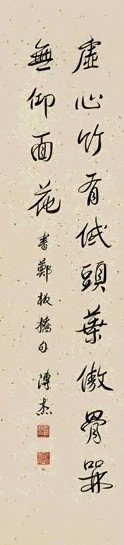 虛心竹有低頭葉傲骨槑
無仰面花
書鄭板橋句 溥杰